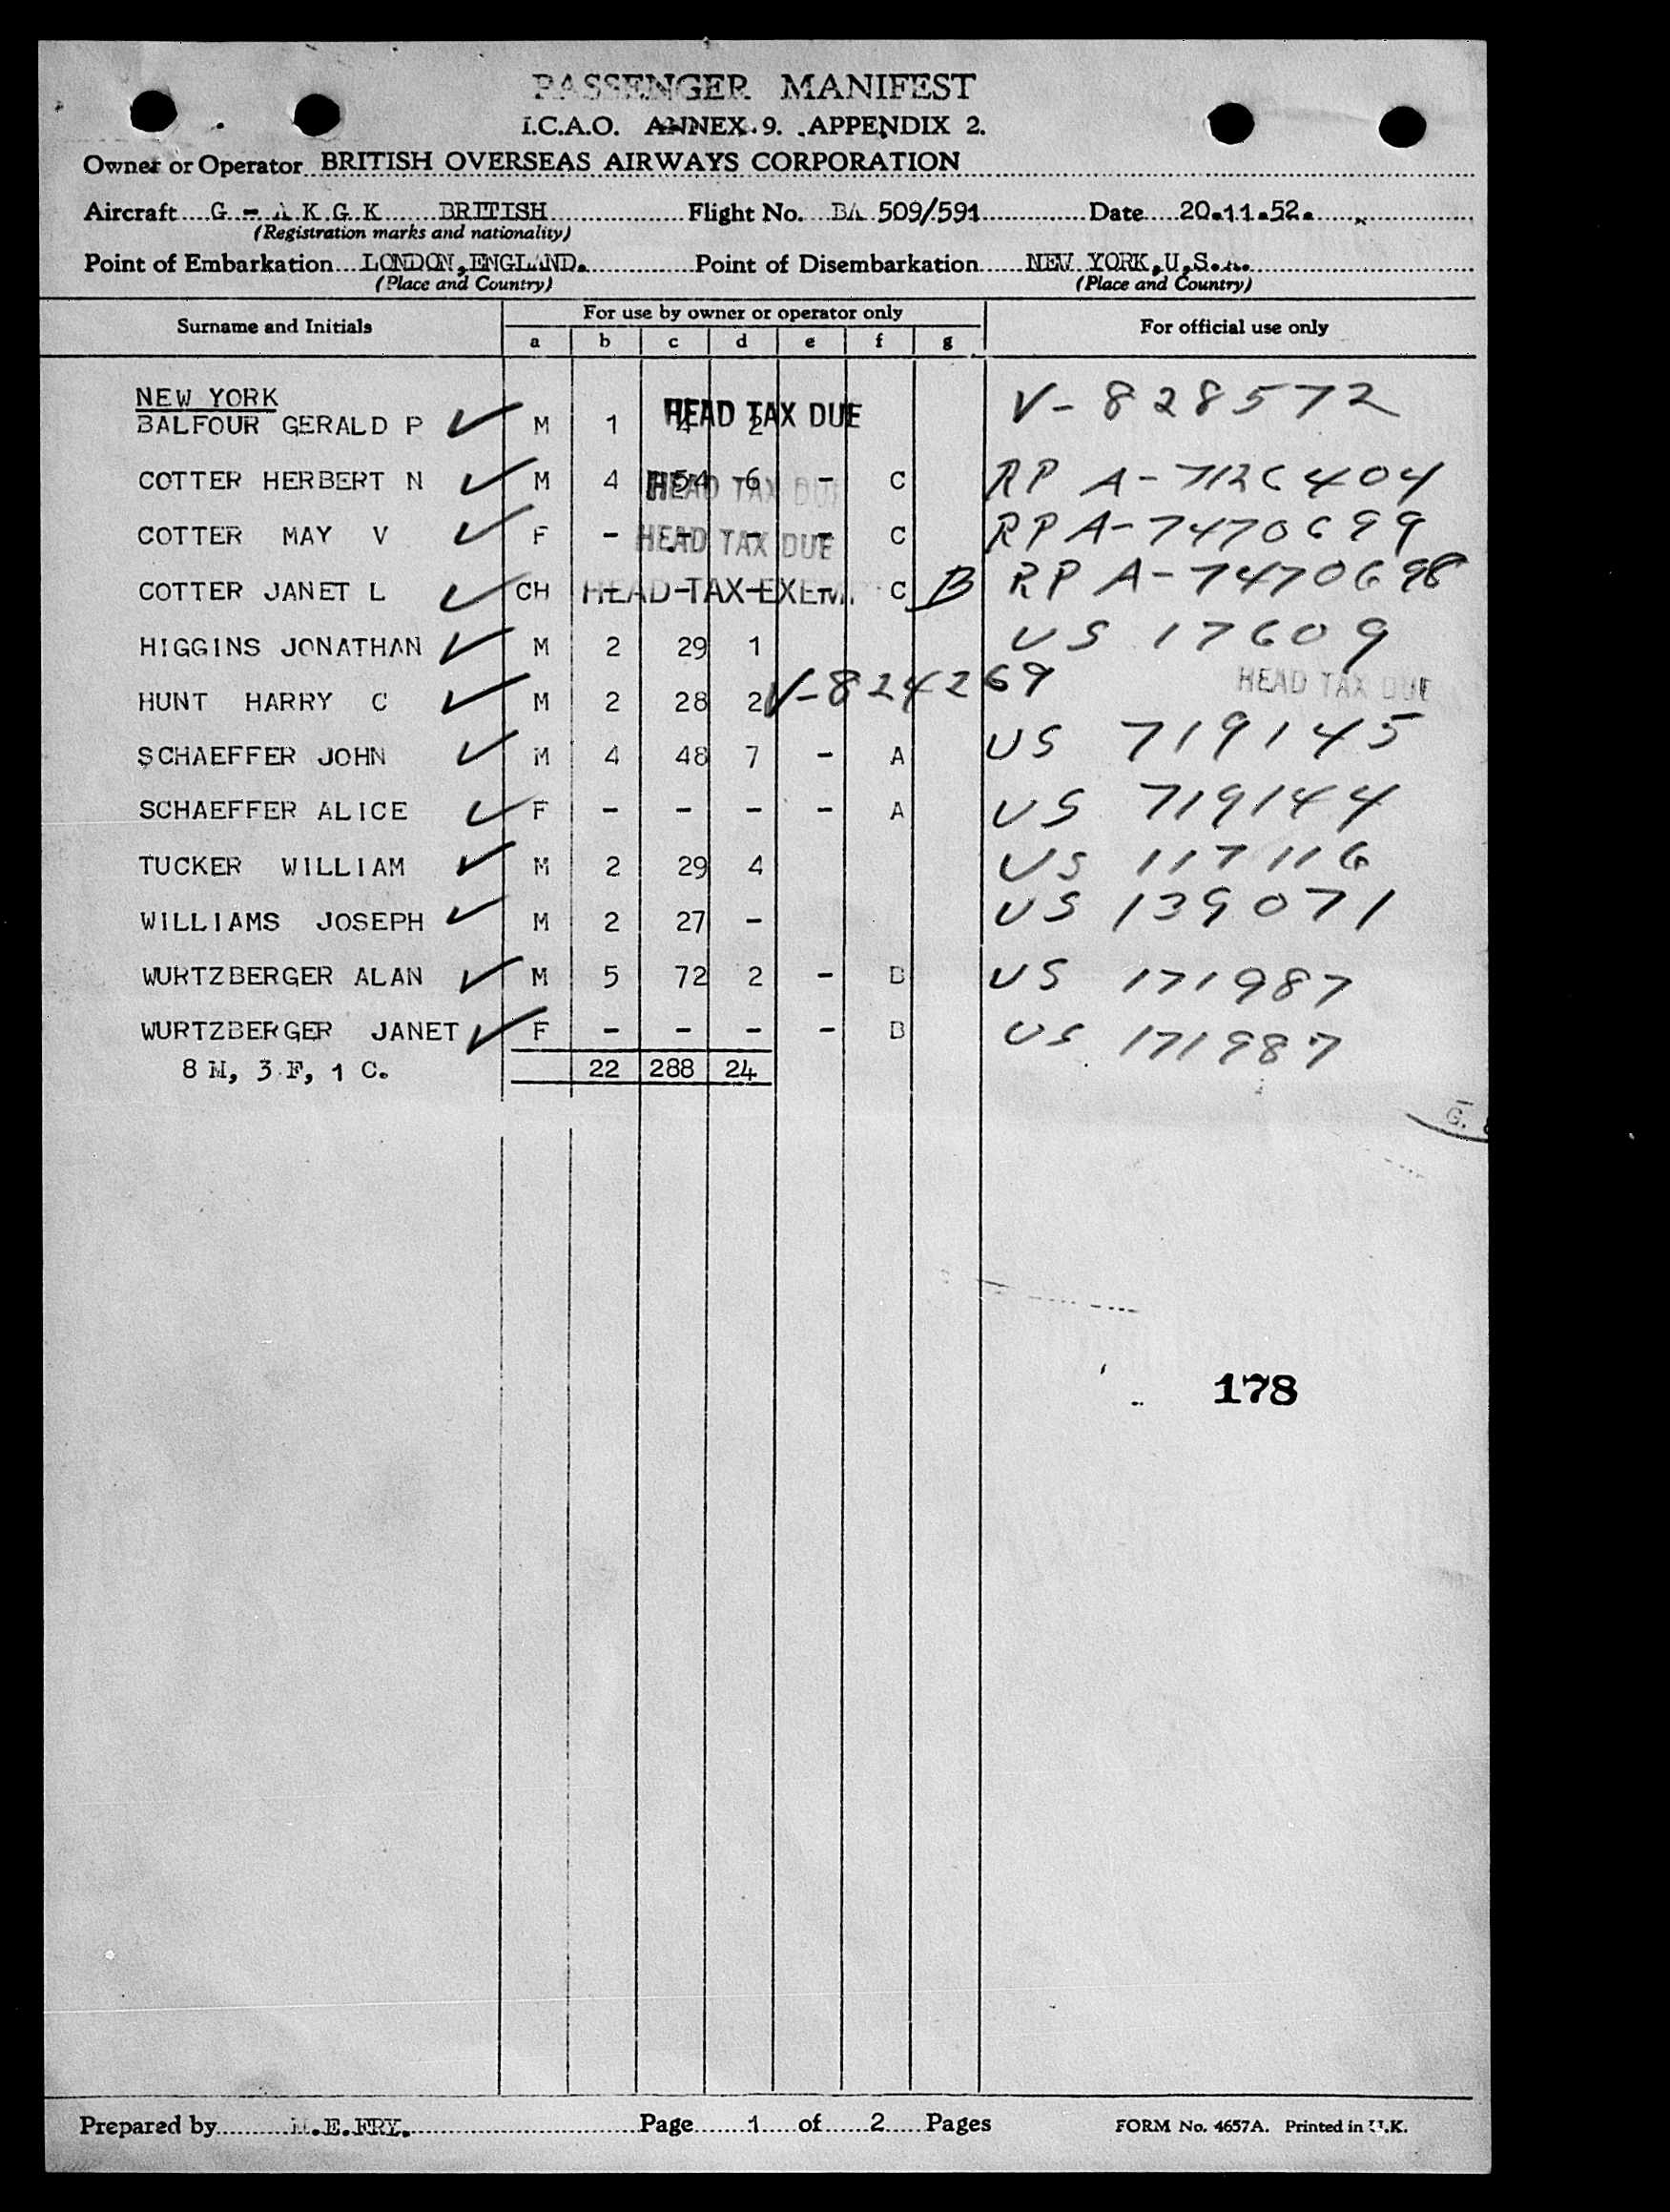 PASSENGER MANIFEST
I.C.A.O. ANNEX 9. APPENDIX 2.
Owner or Operator BRITISH OVERSEAS AIRWAYS CORPORATION
Aircraft G - A K G K BRITISH Flight No. BA 509/591 Date 20.11.52.
(Registration marks and nationality)
Point of Embarkation LONDON, ENGLAND. Point of Disembarkation NEW YORK, U.S.A.
(Place and Country) (Place and Country)
Surname and Initials For use by owner or operator only For official use only
a b c d e f g
NEW YORK
BALFOUR GERALD P ✓ M 1 4 2 HEAD TAX DUE V-828572
COTTER HERBERT N ✓ M 4 54 6 - C HEAD TAX DUE RP A-7126404
COTTER MAY V ✓ F - - - - C HEAD TAX DUE RP A-7470699
COTTER JANET L ✓ CH - - - - C HEAD TAX EXEM B RP A-7470698
HIGGINS JONATHAN ✓ M 2 29 1 US 17609
HUNT HARRY C ✓ M 2 28 2 V-824269 HEAD TAX DUE
SCHAEFFER JOHN ✓ M 4 48 7 - A US 719145
SCHAEFFER ALICE ✓ F - - - - A US 719144
TUCKER WILLIAM ✓ M 2 29 4 US 117116
WILLIAMS JOSEPH ✓ M 2 27 - US 139071
WURTZBERGER ALAN ✓ M 5 72 2 - B US 171987
WURTZBERGER JANET ✓ F - - - - B US 171987
8 M, 3 F, 1 C. 22 288 24
178
Prepared by M.E.FRY. Page 1 of 2 Pages FORM No. 4657A. Printed in U.K.